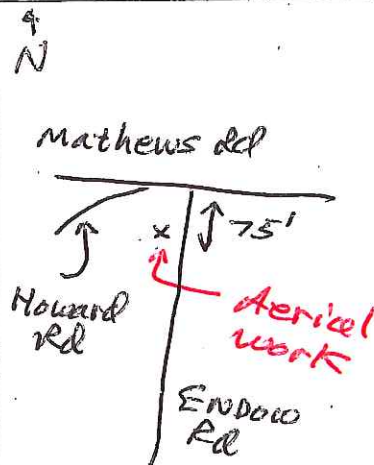 N
Mathews Rd
75'
x
Howard
Rd
Aerical
work
ENDOW
Rd